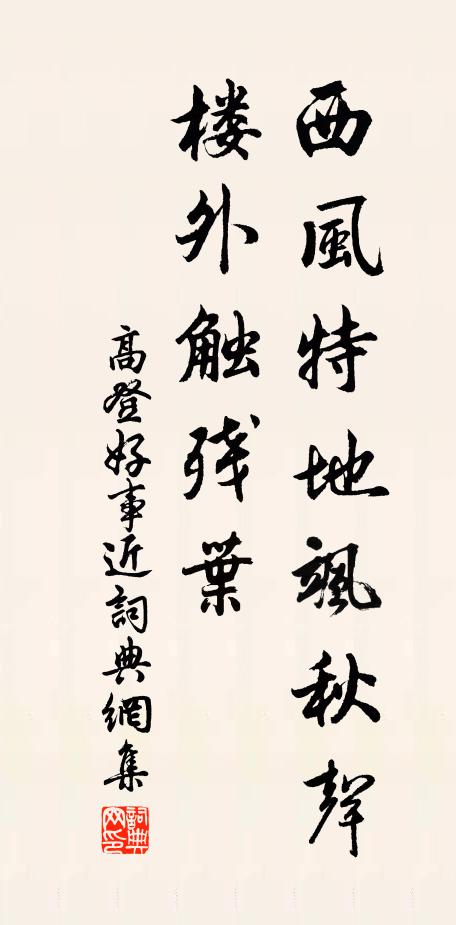 西風特地颯秋聲
楼外触残葉
高登好事近詞典網集
詞典网印